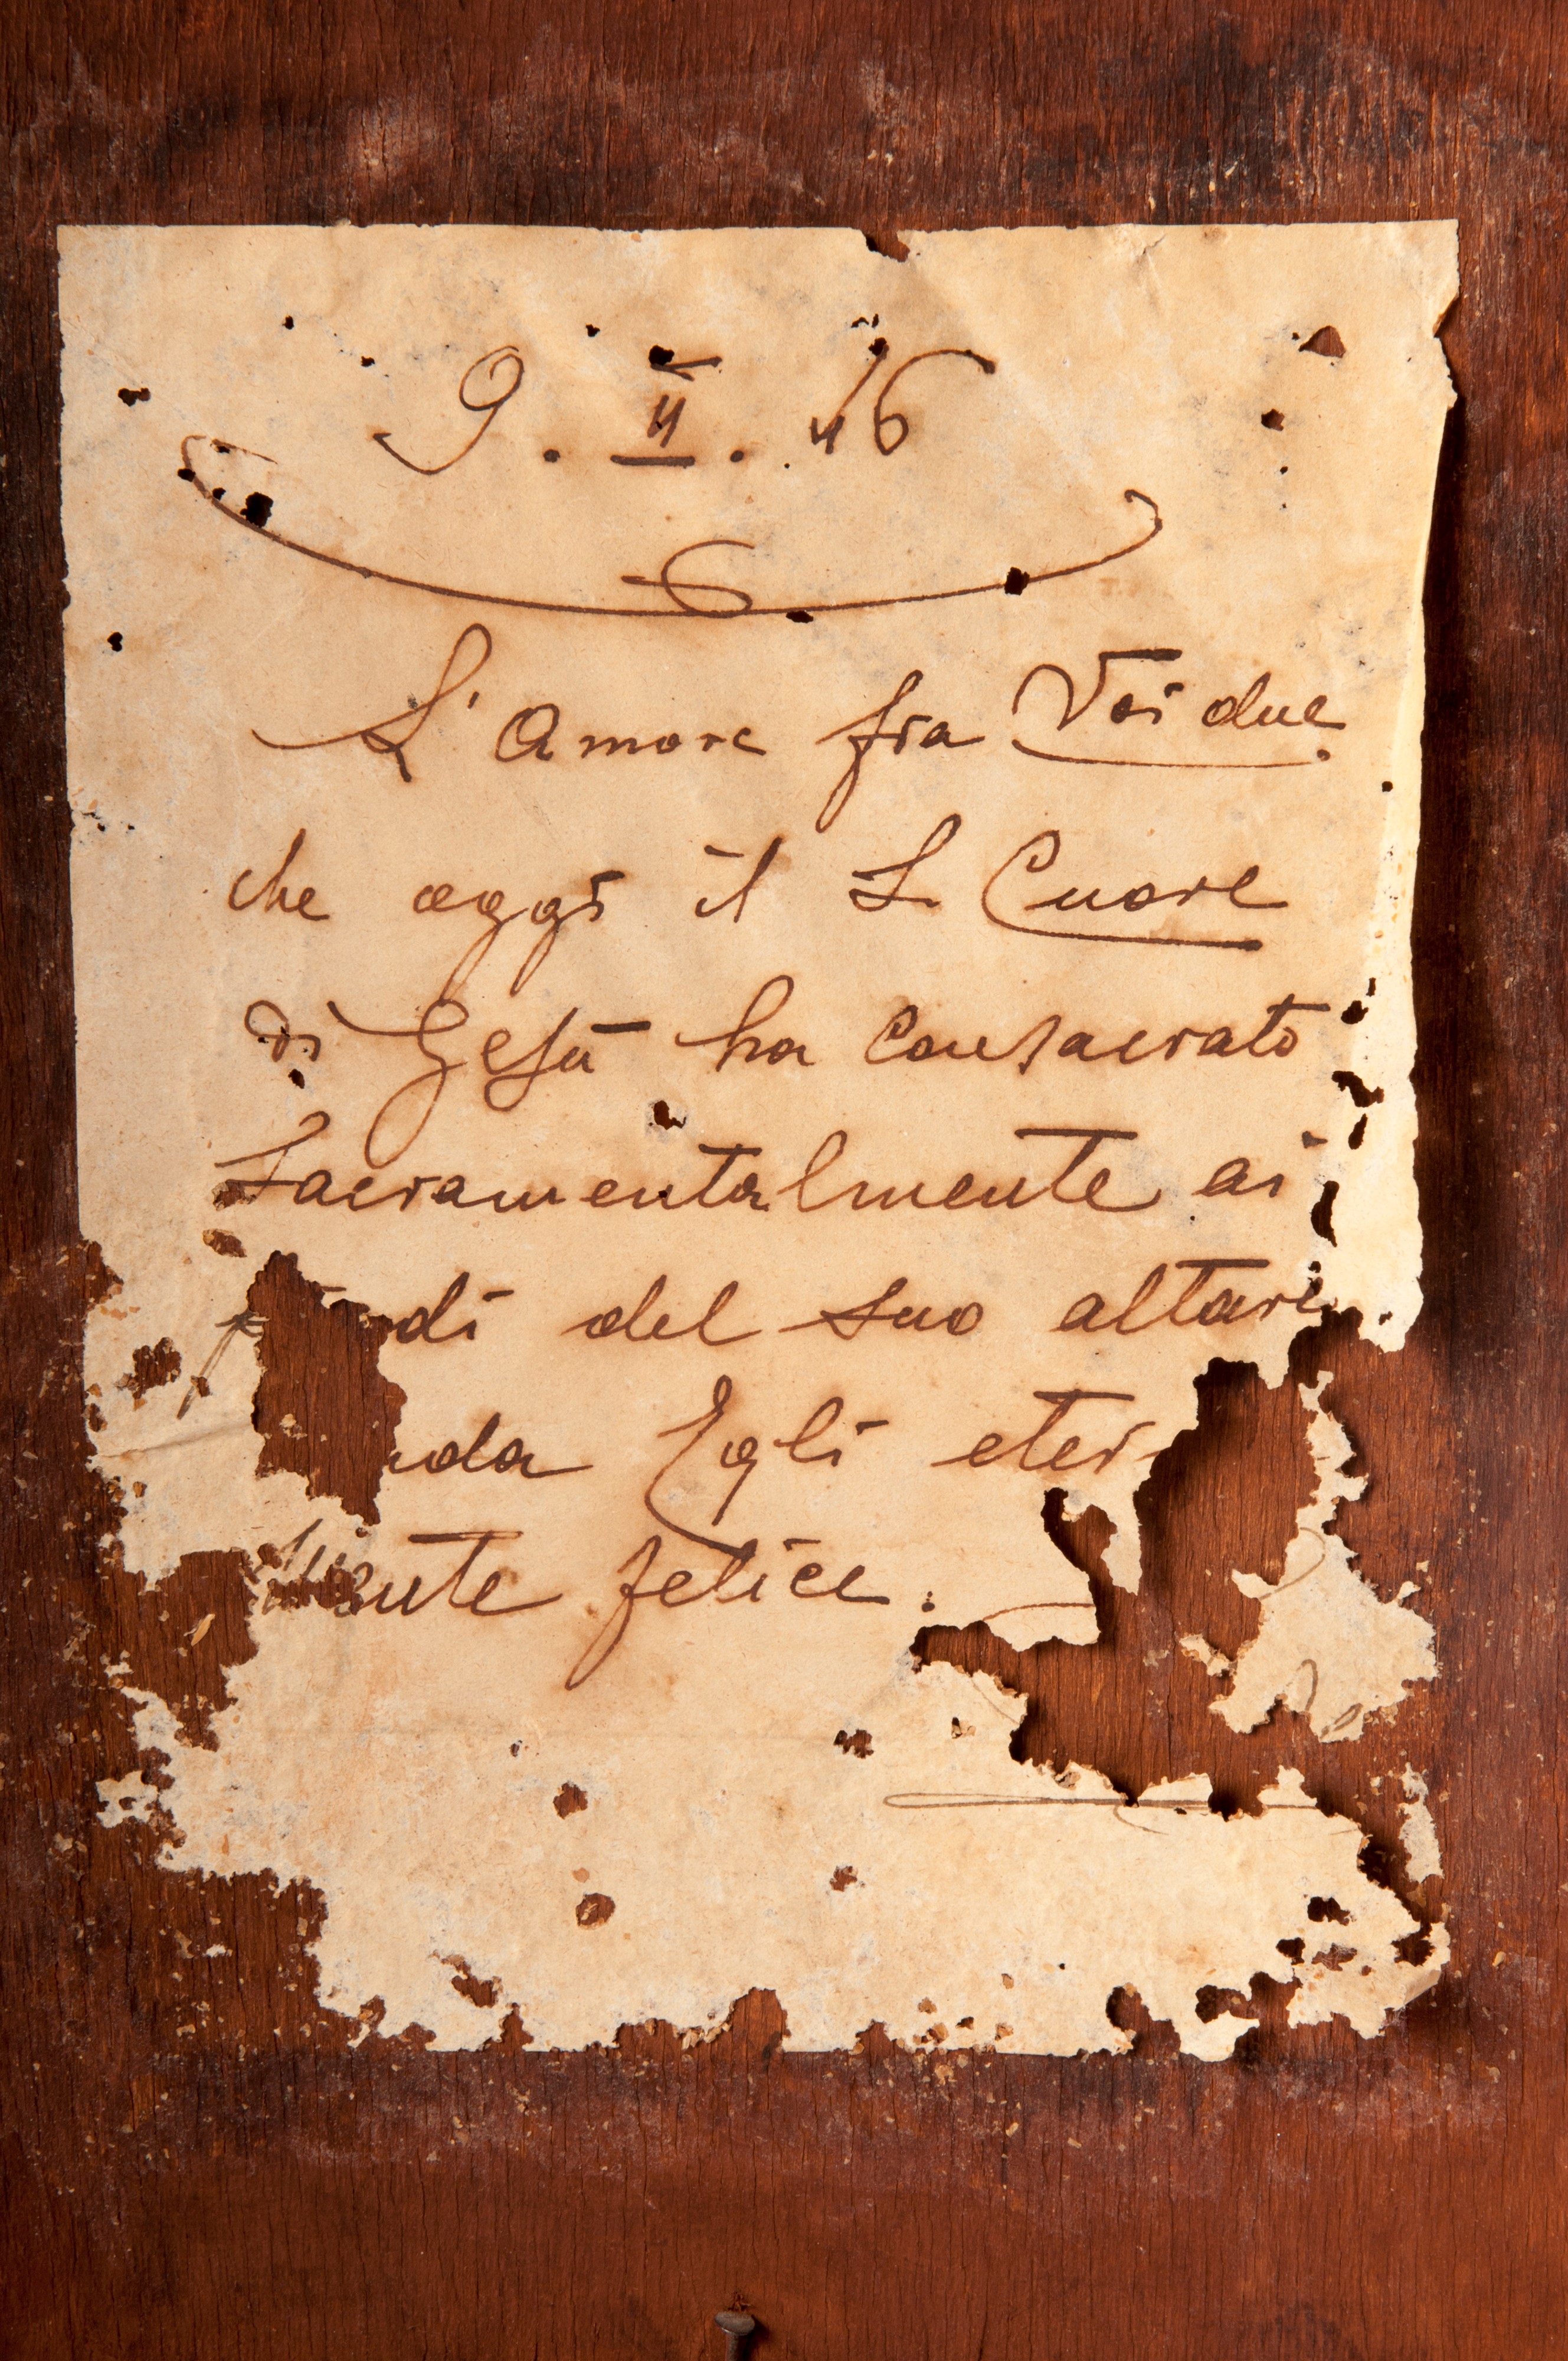 9. II. 46
L'Amore fra Voi due
che oggi il S. Cuore
di Gesù ha Consacrato
Sacramentalmente ai
del suo altare
Egli
felice.